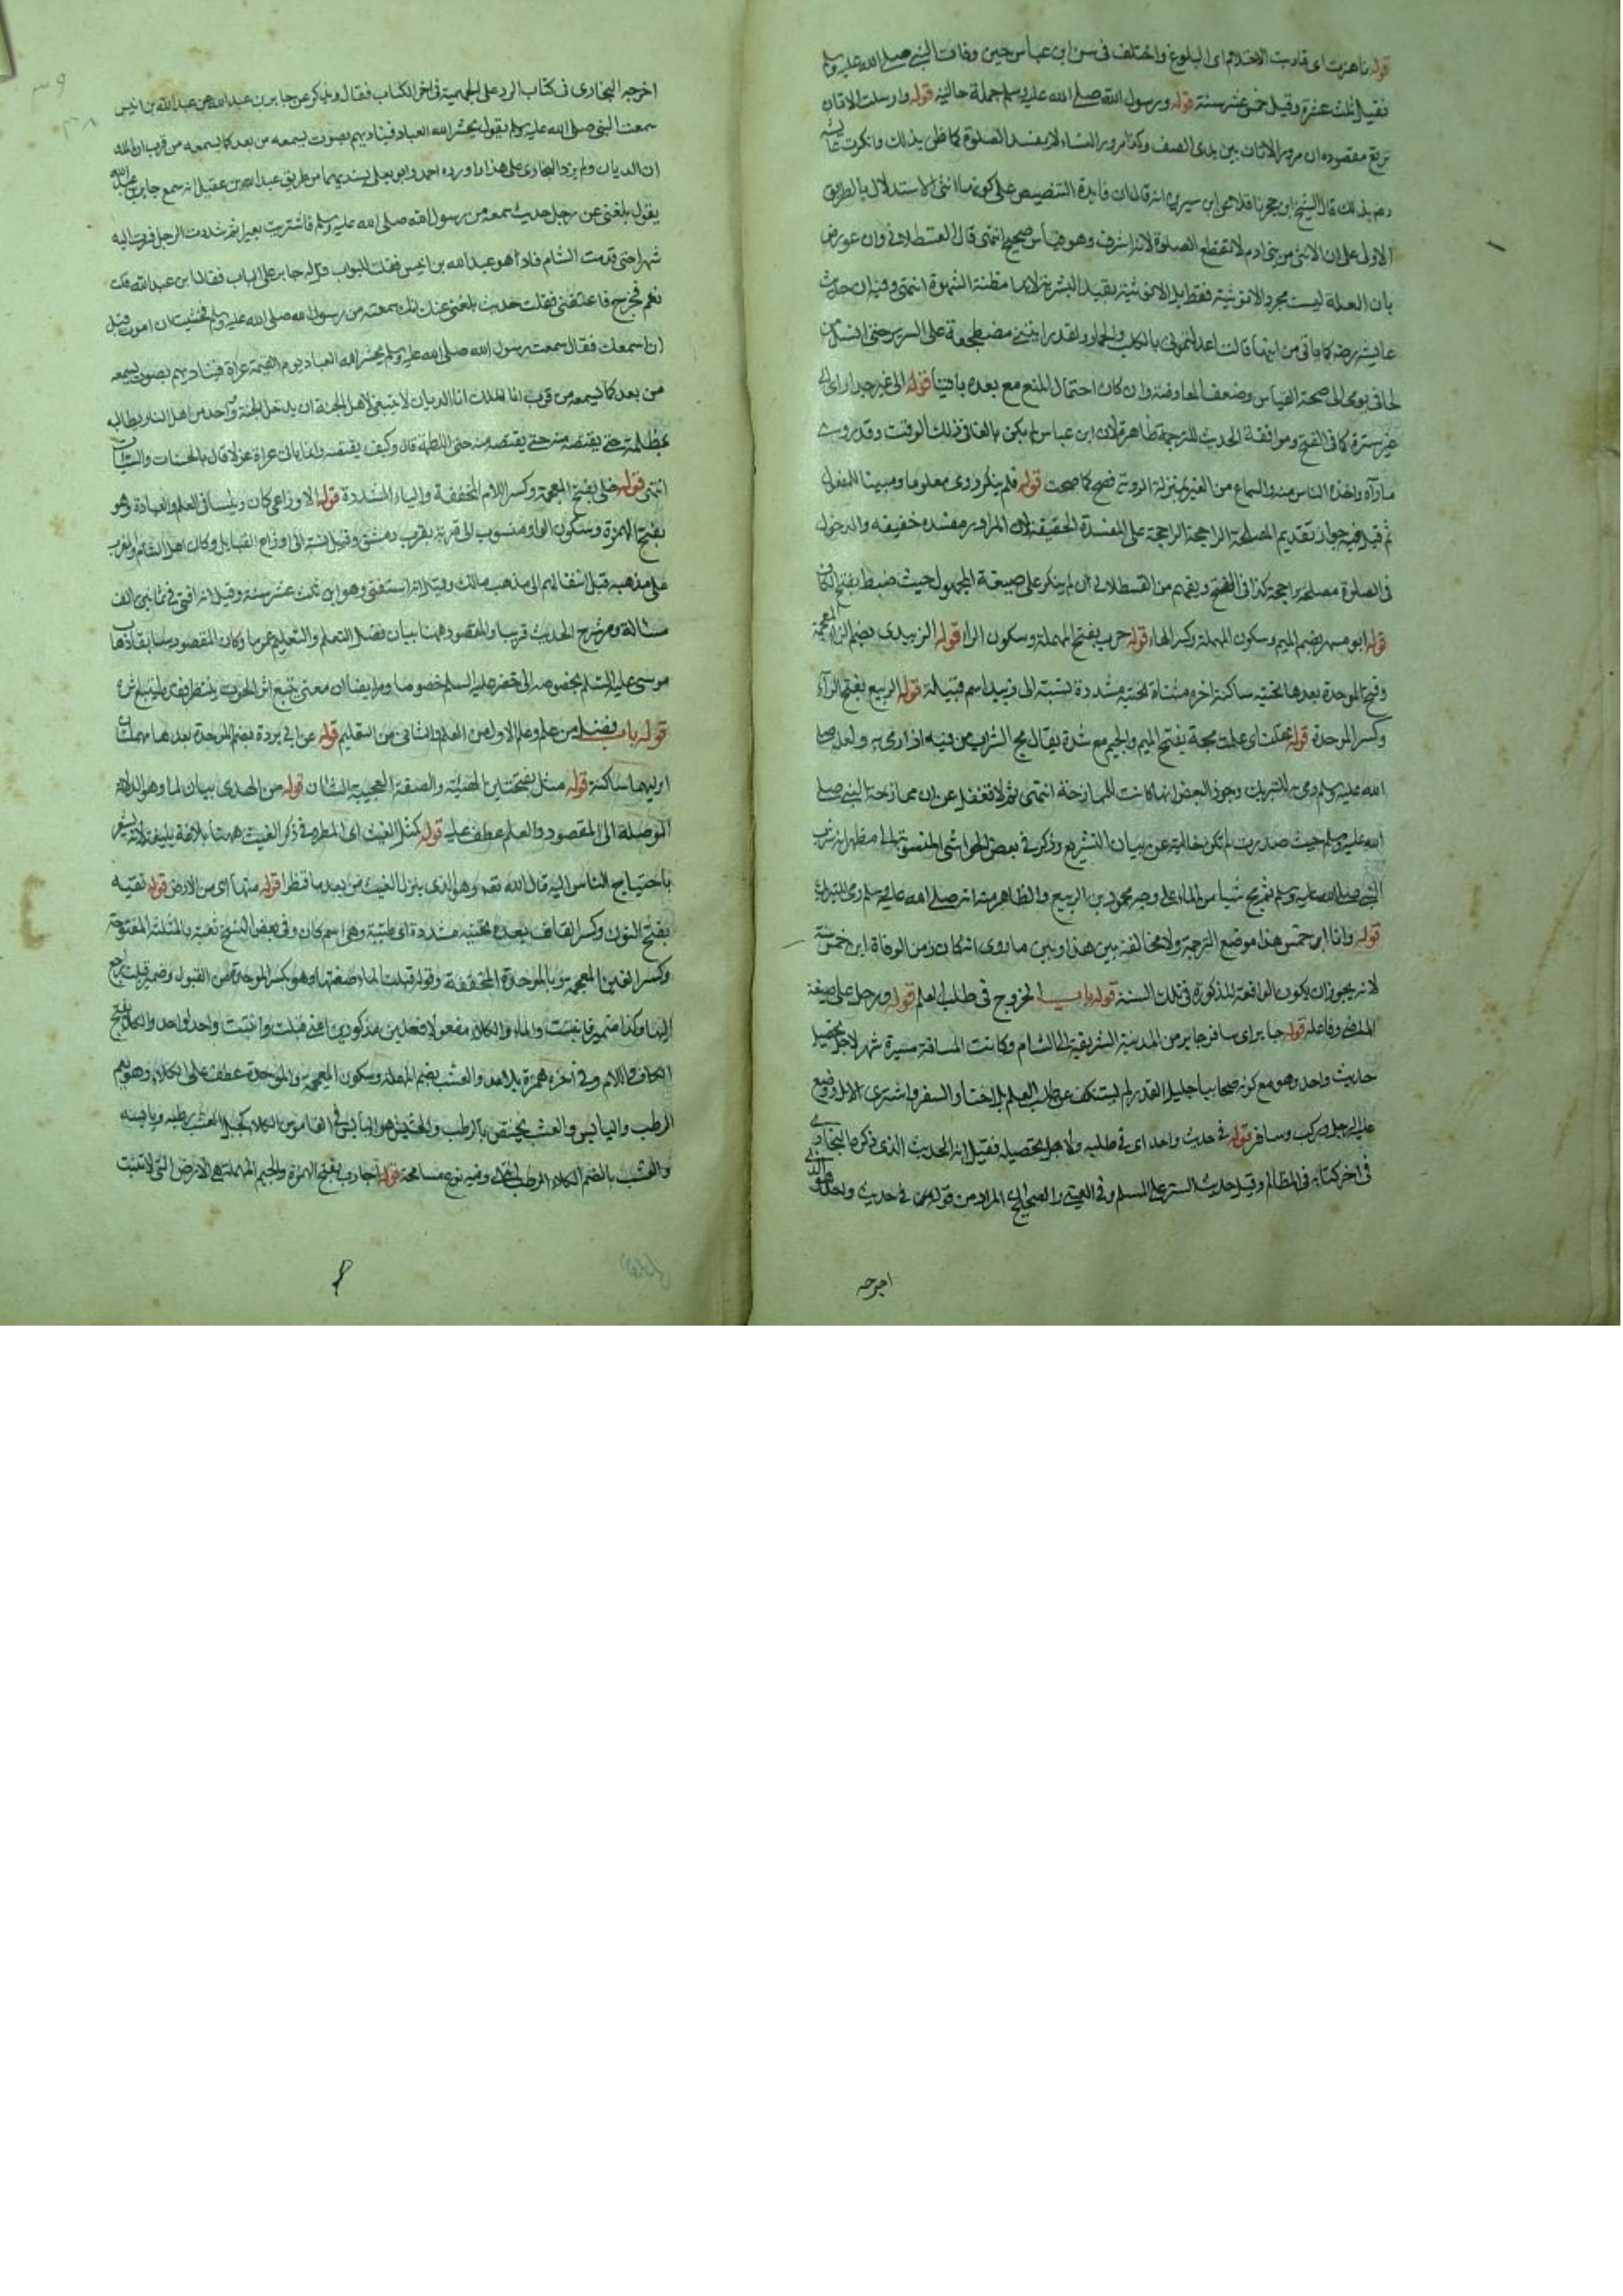 قوله ناهزت اى قاربت الاحتلام اى البلوغ واختلف فى سن ابن عباس حين وفات النبى صلى الله عليه وسلم
فقيل ثلث عشرة وقيل خمس عشر سنة قوله ورسول الله صلى الله عليه وسلم جملة حالية قوله وارسلت الاتان
ترتع مقصوده ان مرور الاتان بين يدى الصف وكذا مرور النساء لا يفسد الصلوة كما ظن بذلك وانكرت عائشة
ذلك قال الشيخ ابن حجر ناقلا عن ابن سيرين انه قال ان فايدة التنصيص على كونها انثى الاستدلال بالطريق
الاولى على ان الانثى من بنى ادم لا تقطع الصلوة لانه اشرف وهو قياس صحيح انتهى قال القسطلانى وان عورض
بان العلة ليست مجرد الانوثية فقط بل الانوثية بقيد البشرية لانها مظنة الشهوة انتهى وفيه ان حديث
عايشة رضه كما ياتى من انها قالت اعدلتمونى بالكلب والحمار ولقد رايتنى مضطجعة على السرير حتى انسل من
لحافى يومى الى صحة القياس وضعف المعارضة وان كان احتمال المنع مع بعده باقيا قوله الى غير جدار اى الى
غير سترة كما فى الفتح وموافقة الحديث للترجمة ظاهرة لان ابن عباس لم يكن بالغا فى ذلك الوقت وقد روى
ما رآه واخذه الناس منه والسماع من الغير بمنزلة الروية فصح كما صحت قوله فلم ينكر روى معلوما ومبنيا للمفعول
ثم قيل فيه جواز تقديم المصلحة الراجحة على المفسدة الخفيفة لان المرور مفسدة خفيفه والدخول
فى الصلوة مصلحة راجحة كذا فى الفتح ويفهم من القسطلانى ان لم ينكر على صيغة المجهول حيث ضبط بفتح الكاف
قوله ابو مسهر بضم الميم وسكون المهملة وكسر الهاء قوله حرب بفتح المهملة وسكون الراء قوله الزبيدى بضم الزاء المعجمة
وفتح الموحدة بعدها تحتيه ساكنة اخره مثناة تحتية مشددة نسبة الى زبيد اسم قبيلة قوله الربيع بفتح الرآء
وكسر الموحدة قوله عقلت اى علمت مجة بفتح الميم والجيم مع شدة يقال مج الشراب من فيه اذا رمى به ولعله صلى
الله عليه وسلم رمى به للتبريك وجوز البعض انها كانت للممازحة انتهى ثم لا تغفل عن ان ممازحة النبى صلى
الله عليه وسلم حيث صدرت لم تكن خالية عن بيان التشريع وذكر فى بعض الحواشى المنسوبة الى مظهر انه شرب
النبى صلى الله عليه وسلم ثم مج شيا من الماء على وجه محمود بن الربيع والظاهر منه انه صلى الله عليه وسلم رمى للتبريك
قوله وانا ابن خمس هذا موضع الترجمة ولا مخالفة بين هذا وبين ما روى انه كان زمن الوفاة ابن خمس سنة
لانه يجوز ان يكون الواقعة المذكورة فى تلك السنة قوله باب الخروج فى طلب العلم قوله ورحل على صيغة
الماضى وفاعله قوله جابر اى سافر جابر من المدينة الشريفة الى الشام وكانت المسافة مسيرة شهر لاجل تحصيل
حديث واحد وهو مع كونه صحابيا جليل القدر لم يستنكف عن طلب العلم بل اختار السفر واشترى الابل ووضع
عليه الرحل وركب وسافر قوله فى حديث واحد اى فى طلبه ولاجل تحصيله فقيل انه الحديث الذى ذكره البخارى
فى اخر كتابه فى المظالم وقيل حديث الستر على المسلم وفى العينى والصحيح ان المراد من قوله فى حديث واحد هو الذى
اخرجه
اخرجه البخارى فى كتاب الرد على الجهمية فى اخر الكتاب فقال ويذكر عن جابر بن عبد الله عن عبد الله بن انيس
سمعت النبى صلى الله عليه وسلم يقول يحشر الله العباد فيناديهم بصوت يسمعه من بعد كما يسمعه من قرب انا الملك
انا الديان ولم يزد البخارى على هذا واورده احمد وابو يعلى بسنديهما من طريق عبد الله بن عقيل انه سمع جابر بن عبد الله
يقول بلغنى عن رجل حديث سمعه من رسول الله صلى الله عليه وسلم فاشتريت بعيرا ثم شددت الرحل فسرت اليه
شهرا حتى قدمت الشام فاذا هو عبد الله بن انيس فقلت للبواب قل له جابر على الباب فقال ابن عبد الله قلت
نعم فخرج فاعتنقنى فقلت حديث بلغنى عنك انك سمعته من رسول الله صلى الله عليه وسلم فخشيت ان اموت قبل
ان اسمعك فقال سمعت رسول الله صلى الله عليه وسلم يحشر الله العباد يوم القيمة عراة فيناديهم بصوت يسمعه
من بعد كما يسمعه من قرب انا الملك انا الديان لا ينبغى لاهل الجنة ان يدخل الجنة واحد من اهل النار يطالب
بمظلمة حتى يقتصه منه حتى اللطمة قال وكيف يقتصه وانما ياتى عراة عزلا قال بالحسنات والسيآت
انتهى قوله خلى بفتح المعجمة وكسر اللام المخففة والياء المشددة قوله الاوزاعى كان رئيسا فى العلم والعبادة وهو
بفتح الهمزة وسكون الواو منسوب الى قرية بقرب دمشق وقيل نسبة الى اوزاع القبايل وكان اهل الشام والمغرب
على مذهبه قبل انتقالهم الى مذهب مالك وقيل انه استفتى وهو ابن ثلث عشر سنة وقيل انه افتى فى ثمانين الف
مسالة ومر شرح الحديث قريبا والمقصود ههنا بيان فضل التعلم والتعليم عموما وكان المقصود سابقا ذهاب
موسى عليه السلم بخصوصه الى خضر عليه السلم خصوصا ومر ايضا ان معنى يتبع اثر الحوت ينتظر فقده
قوله باب فضل من علم وعلم الاول من العلم والثانى من التعليم قوله عن ابى بردة بضم الموحدة بعدها مهملتان
اوليهما ساكنة قوله مثل بفتحتين الهيئة والصفة العجيبة الشان قوله من الهدى بيان لما وهو الدلالة
الموصلة الى المقصود والعلم عطف عليه قوله كمثل الغيث اى المطر وفى ذكر الغيث ههنا بلاغة بليغة لانه يشعر
باحتياج الناس اليه قال الله تعه وهو الذى ينزل الغيث من بعد ما قنطوا قوله منها اى من الارض قوله نقية
بفتح النون وكسر القاف بعده تحتيه مشددة اى طيبة وهى اسم كان وفى بعض النسخ ثغبة بالمثلثة المفتوحة
وكسر الغين المعجمة والموحدة المخففة وقوله قبلت الماء صفتها وهو بكسر الموحدة من القبول وضمير قبلت راجع
اليها وكذا ضمير فانبتت والماء والكلاء مفعولا فعلين مذكورين اعنى قبلت وانبتت واحد لواحد والكلاء بفتح
الكاف واللام وفى اخره همزة بلا مد والعشب بضم المهملة وسكون المعجمة والموحدة عطف على الكلاء وهو يعم
الرطب واليابس والعشب يختص بالرطب والحشيش هو اليابس فى القاموس الكلاء كجبل العشب رطبه ويابسه
والعشب بالضم الكلاء الرطب وفيه نوع مسامحة قوله اجادب بفتح الهمزة والجيم المهملة هى الارض التى لا تنبت